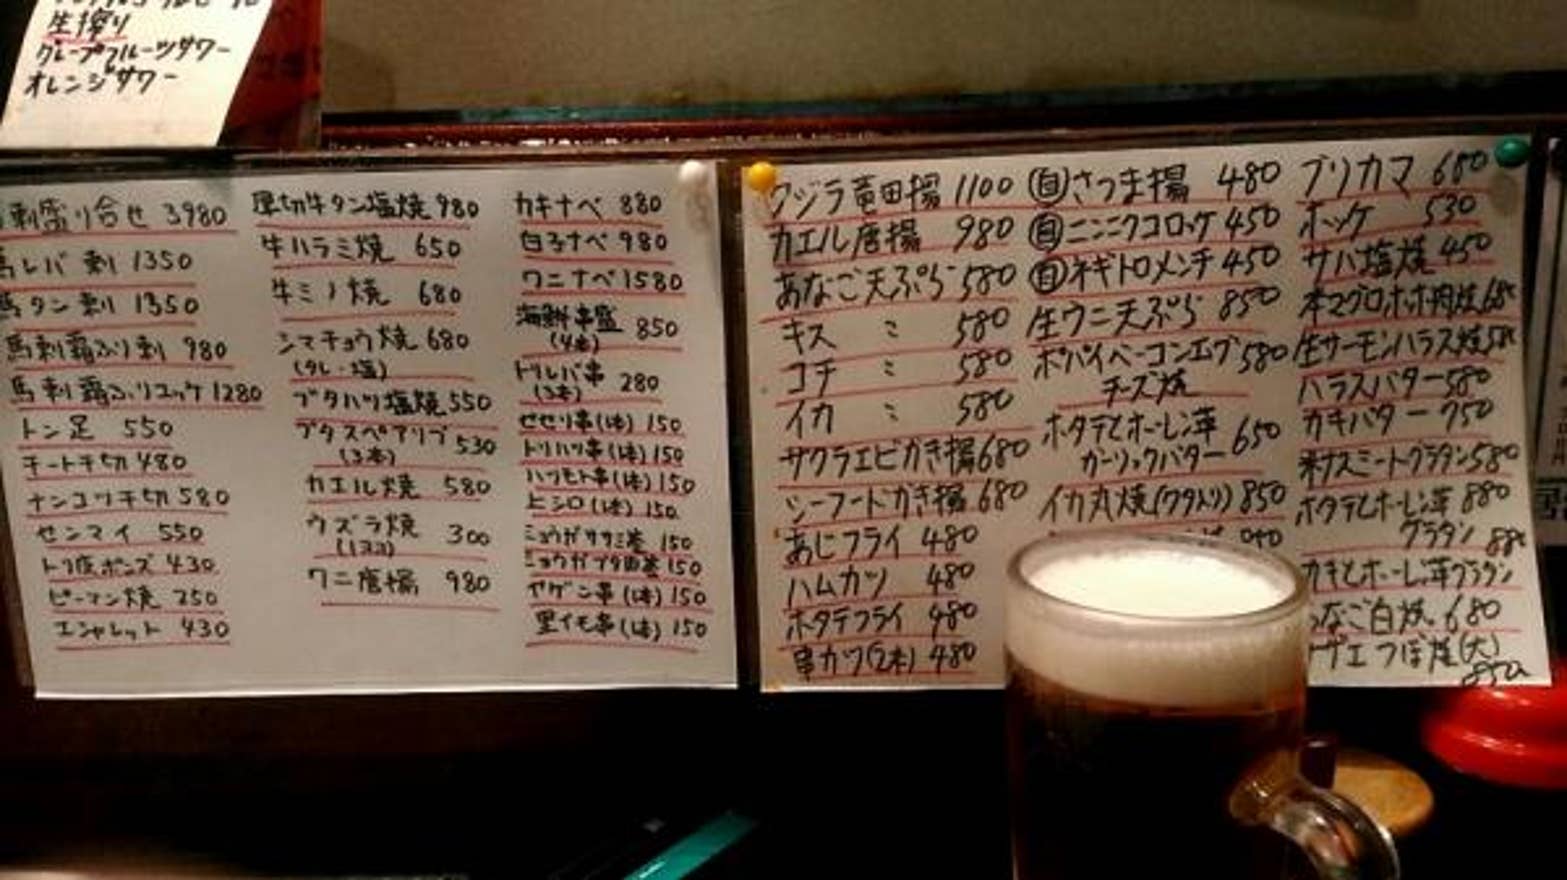 生搾り
グレープフルーツサワー
オレンジサワー
刺盛り合せ 3980
馬レバ刺 1350
馬タン刺 1350
馬刺霜ふり刺 980
馬刺霜ふりユッケ 1280
トン足 550
チートギ切 480
ナンコツギ切 580
センマイ 550
トリ皮ポンズ 430
ピーマン焼 250
エシャレット 430
厚切牛タン塩焼 980
牛ハラミ焼 650
牛ミノ焼 680
シマチョウ焼 680
(タレ・塩)
ブタハツ塩焼 550
ブタスペアリブ 530
(3本)
カエル焼 580
ウズラ焼 300
(13コ)
ワニ唐揚 980
カキナベ 880
白子ナベ 980
ワニナベ 1580
海鮮串盛 850
(4本)
トリレバ串 280
(3本)
セセリ串(1本) 150
トリハツ串(1本) 150
ハツモト串(1本) 150
ヒシロ(1本) 150
ミョウガササミ巻 150
ミョウガブタ肉巻 150
ヤゲン串(1本) 150
里イモ串(1本) 150
クジラ竜田揚 1100
カエル唐揚 980
あなご天ぷら 580
キス 〃 580
コチ 〃 580
イカ 〃 580
サクラエビかき揚 680
シーフードかき揚 680
あじフライ 480
ハムカツ 480
ホタテフライ 480
串カツ(2本) 480
㊂さつま揚 480
ニンニクコロッケ 450
ネギトロメンチ 450
生ウニ天ぷら 850
ポパイベーコンエッグ 580
チーズ焼
ホタテとホーレン草 650
ガーリックバター
イカ丸焼(ワタ入り) 850
ブリカマ 680
ホッケ 530
サバ塩焼 450
本マグロホホ肉焼 680
生サーモンハラス焼 580
ハラスバター 580
カキバター 750
米ナスミートグラタン 580
ホタテとホーレン草 880
グラタン
カキとホーレン草グラタン 880
なご白焼 680
ザエつぼ焼(大)
850